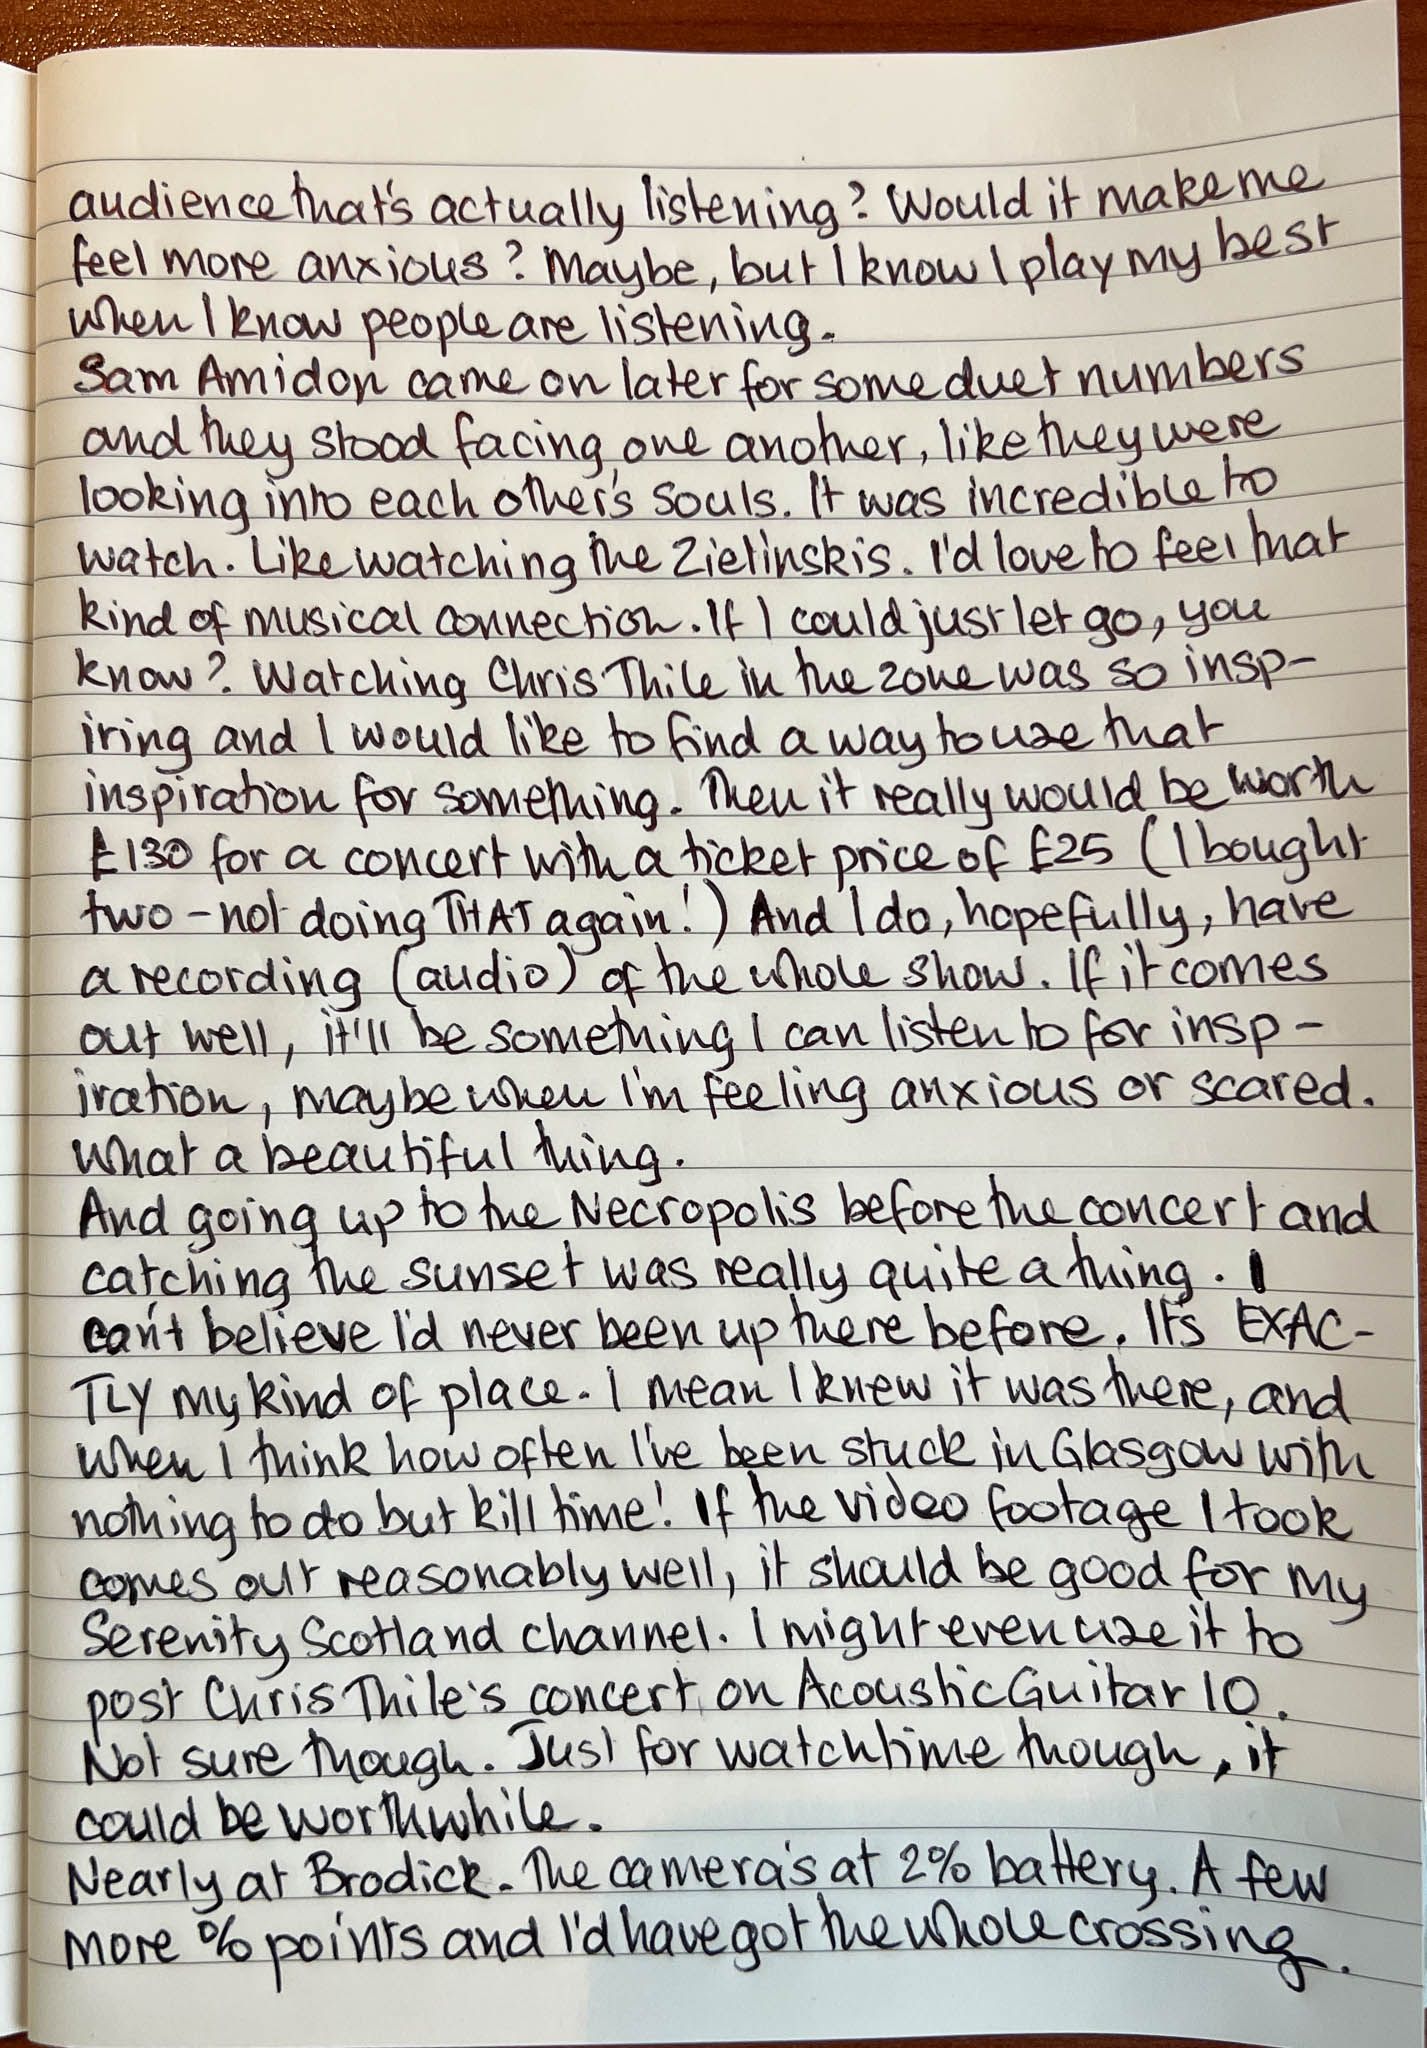 audience that's actually listening? Would it make me
feel more anxious? Maybe, but I know I play my best
when I know people are listening.
Sam Amidon came on later for some duet numbers
and they stood facing one another, like they were
looking into each other's souls. It was incredible to
watch. Like watching the Zielinskis. I'd love to feel that
kind of musical connection. If I could just let go, you
know? Watching Chris Thile in the zone was so insp-
iring and I would like to find a way to use that
inspiration for something. Then it really would be worth
£130 for a concert with a ticket price of £25 (I bought
two - not doing THAT again!) And I do, hopefully, have
a recording (audio) of the whole show. If it comes
out well, it'll be something I can listen to for insp-
iration, maybe when I'm feeling anxious or scared.
What a beautiful thing.
And going up to the Necropolis before the concert and
catching the sunset was really quite a thing. I
can't believe I'd never been up there before. It's EXAC-
TLY my kind of place. I mean I knew it was there, and
when I think how often I've been stuck in Glasgow with
nothing to do but kill time! If the video footage I took
comes out reasonably well, it should be good for my
Serenity Scotland channel. I might even use it to
post Chris Thile's concert on Acoustic Guitar 10.
Not sure though. Just for watchtime though, it
could be worthwhile.
Nearly at Brodick. The camera's at 2% battery. A few
more % points and I'd have got the whole crossing.